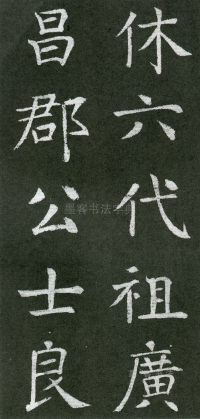 休六代祖廣
昌郡公士良
墨客书法字典